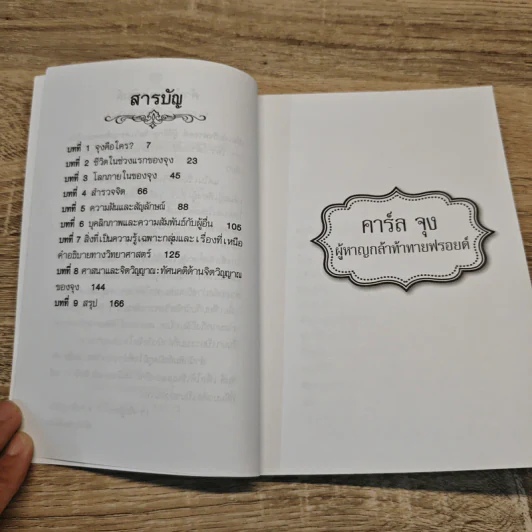 สารบัญ
บทที่ 1 จุงคือใคร? 7
บทที่ 2 ชีวิตในช่วงแรกของจุง 23
บทที่ 3 โลกภายในของจุง 45
บทที่ 4 สำรวจจิต 66
บทที่ 5 ความฝันและสัญลักษณ์ 88
บทที่ 6 บุคลิกภาพและความสัมพันธ์กับผู้อื่น 105
บทที่ 7 สิ่งที่เป็นความรู้เฉพาะกลุ่มและเรื่องที่เหนือ
คำอธิบายทางวิทยาศาสตร์ 125
บทที่ 8 ศาสนาและจิตวิญญาณ: ทัศนคติด้านจิตวิญญาณ
ของจุง 144
บทที่ 9 สรุป 166
คาร์ล จุง
ผู้หาญกล้าท้าทายฟรอยด์